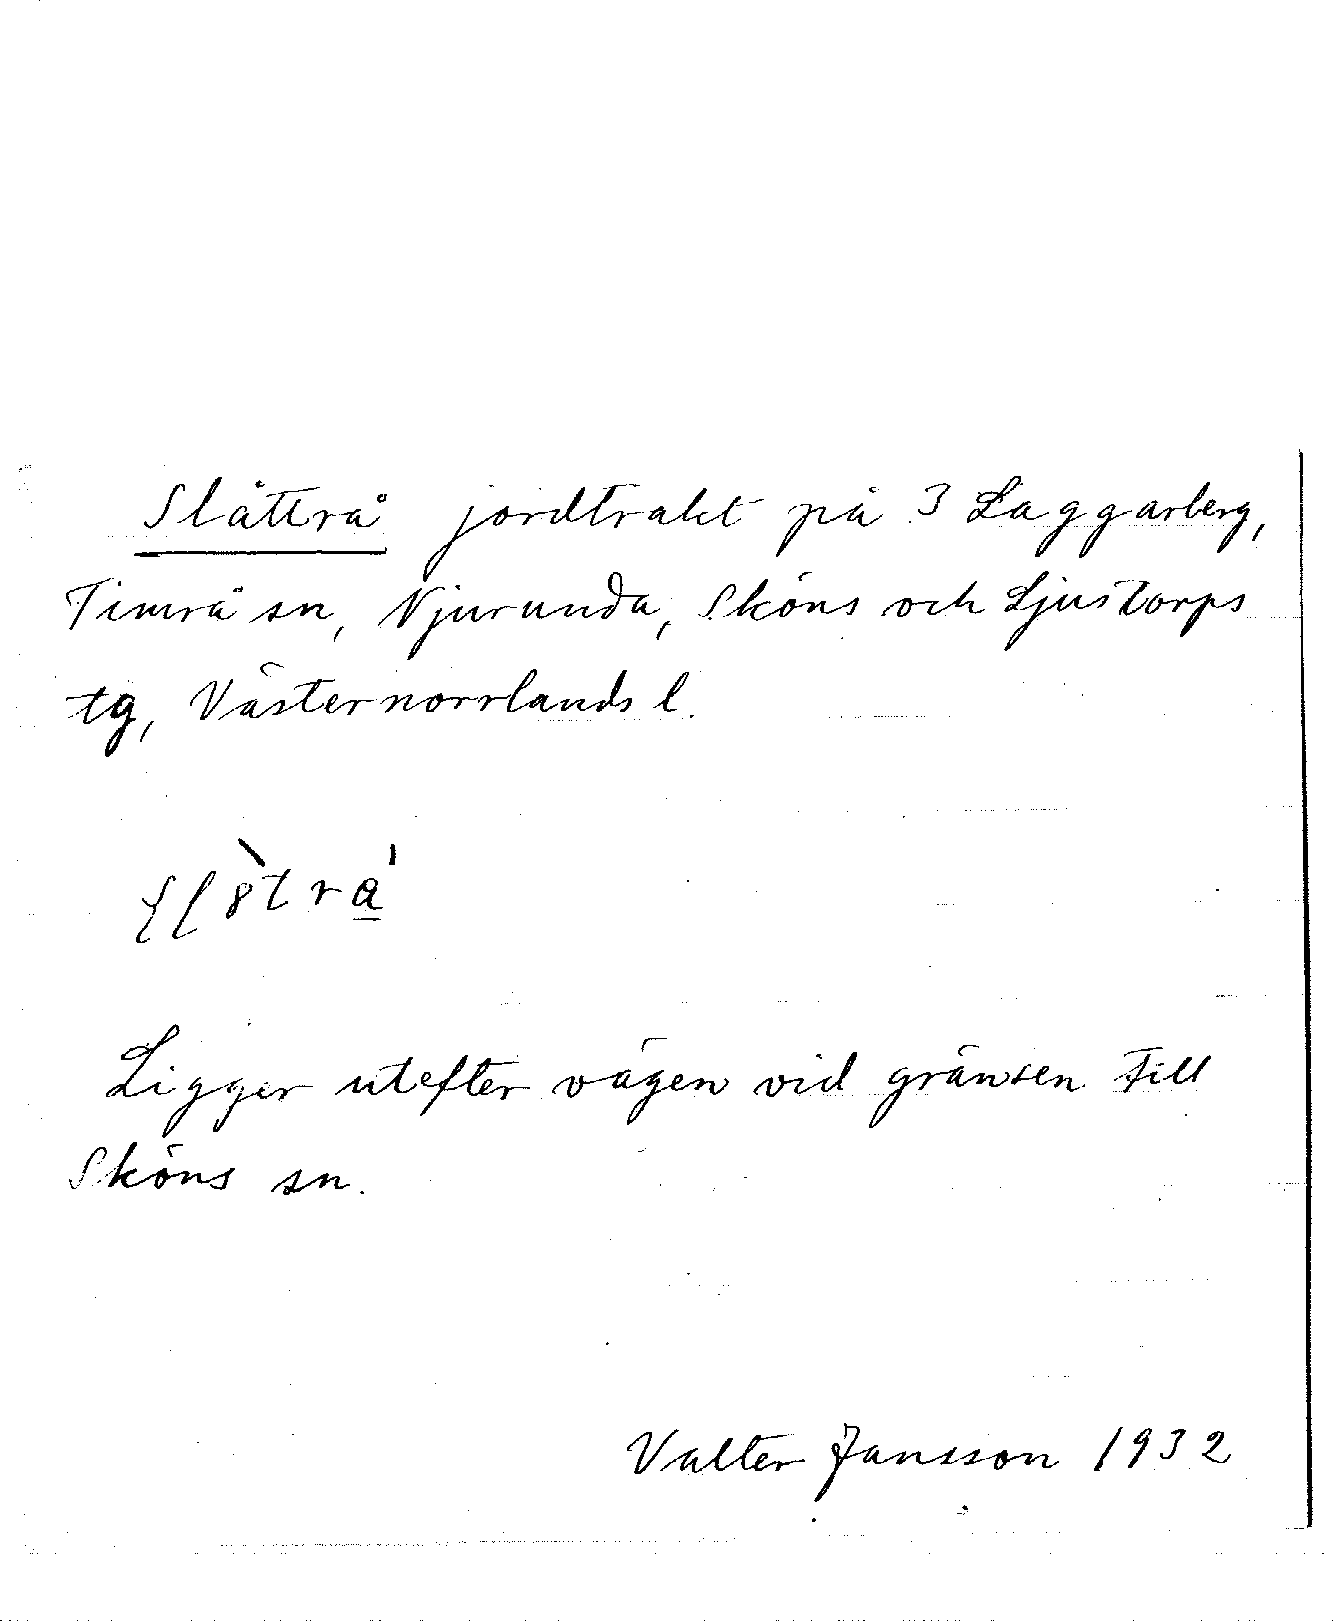 Slåttrå jordtrakt på 3 Laggarberg,
Timrå sn, Njurunda, Sköns och Ljustorps
tg, Västernorrlands l.
Ligger utefter vägen vid gränsen till
Sköns sn.
Valter Jansson 1932